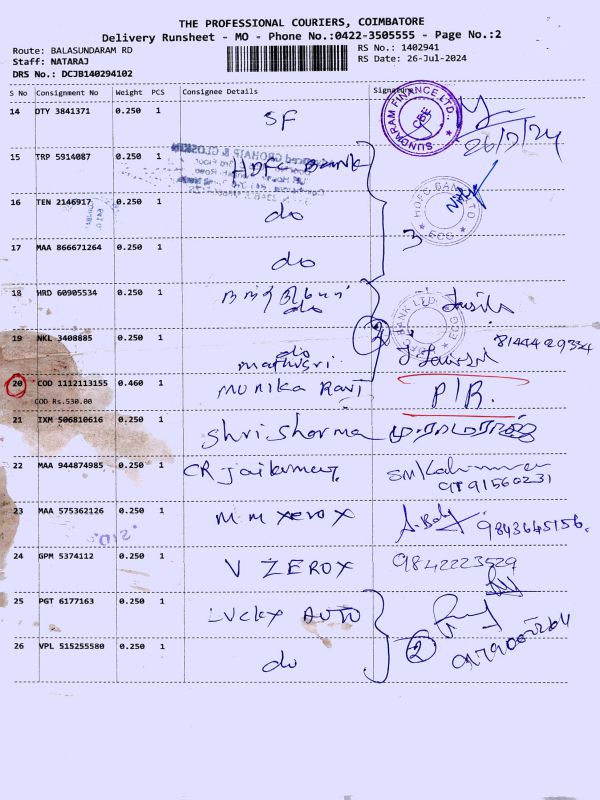 THE PROFESSIONAL COURIERS, COIMBATORE
Delivery Runsheet - MO - Phone No.:0422-3505555 - Page No.:2
Route: BALASUNDARAM RD
RS No.: 1402941
Staff: NATARAJ
RS Date: 26-Jul-2024
DRS No.: DCJB140294102
S No Consignment No Weight PCS Consignee Details Signature
14 DTY 3841371 0.250 1 SF
SUNDARAM FINANCE LTD., CBE
26/7/24
15 TRP 5914087 0.250 1 HDFC Bank
16 TEN 2146917 0.250 1 do
HDFC BANK LTD ECG
3
17 MAA 866671264 0.250 1 do
18 HRD 60905534 0.250 1
do
BANK LTD. ECG
19 NKL 3408885 0.250 1 do
81444
mathusri
20 COD 1112113155 0.460 1 monika Ravi P/R.
COD Rs.530.00
21 IXM 506810616 0.250 1 Shri sharma
22 MAA 944874985 0.250 1 CR Jaikumar
9191560231
23 MAA 575362126 0.250 1 MM Xerox 9843645156.
24 GPM 5374112 0.250 1 V ZEROX 9842223529
25 PGT 6177163 0.250 1 LUCKY AUTO
26 VPL 515255580 0.250 1 do
2